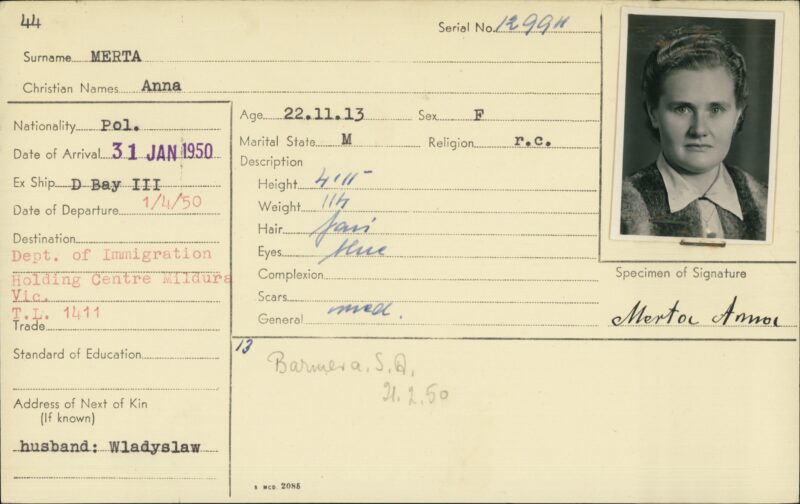 44
Serial No. 12994
Surname MERTA
Christian Names Anna
Nationality Pol.
Date of Arrival 31 JAN 1950
Ex Ship D Bay III
Date of Departure 1/4/50
Destination
Dept. of Immigration
Holding Centre Mildura
Vic.
T.L. 1411
Trade
Standard of Education
Address of Next of Kin
(If known)
husband: Wladyslaw
Age 22.11.13 Sex F
Marital State M Religion r.c.
Description
Height 4'11"
Weight 114
Hair fair
Eyes blue
Complexion
Scars
General med.
Specimen of Signature
Merta Anna
13
Barmera. S.A.
21.2.50
2085